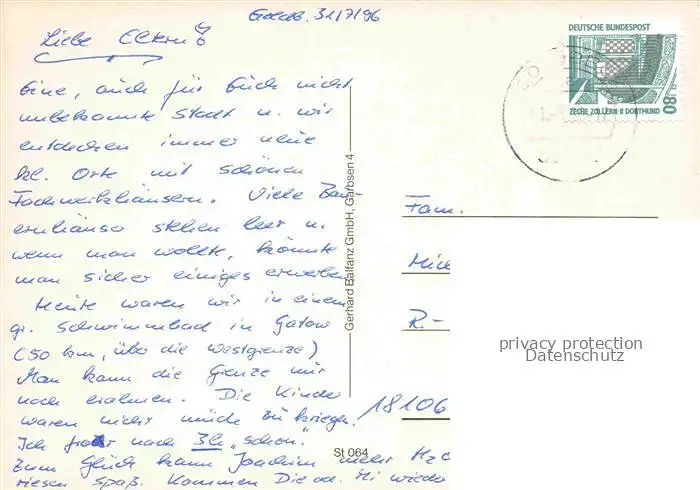 31/7/96
Liebe Eltern!
Eine, auch für Euch nicht
unbekannte Stadt u. wir
entdecken immer neue
kl. Orte mit schönen
Fachwerkhäusern. Viele Bau-
ernhäuser stehen leer u.
wenn man wollte, könnte
man sicher einiges erwerben
Heute waren wir in einem
gr. Schwimmbad in
(50 km, über die Westgrenze)
Man kann die Grenze nur
noch erahnen. Die Kinder
waren nicht müde zu kriegen.
Ich nach 3h "schon".
Zum Glück kann Joachim mehr
riesen Spaß. Kommen Die od. Mi wieder
Gerhard Balfanz GmbH, Garbsen 4
St 064
DEUTSCHE BUNDESPOST
80
ZECHE ZOLLERN II DORTMUND
Fam.
R.-
18106
privacy protection
Datenschutz